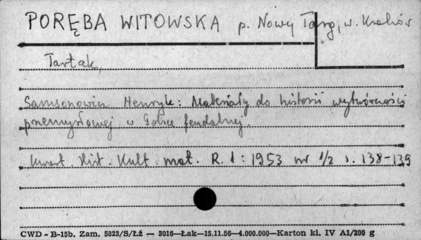 PORĘBA WITOWSKA p. Nowy Targ, w. Kraków
Tartak,
Samsonowicz Henryk: Materiały do historii wytwórczości
przemysłowej w Polsce feudalnej.
Kwart. Hist. Kult. mat. R. 1: 1953 nr 1/2 s. 138-139
CWD - B-15b. Zam. 5823/S/Łż — 3016—Łak—15.11.56—4.000.000—Karton kl. IV A1/200 g